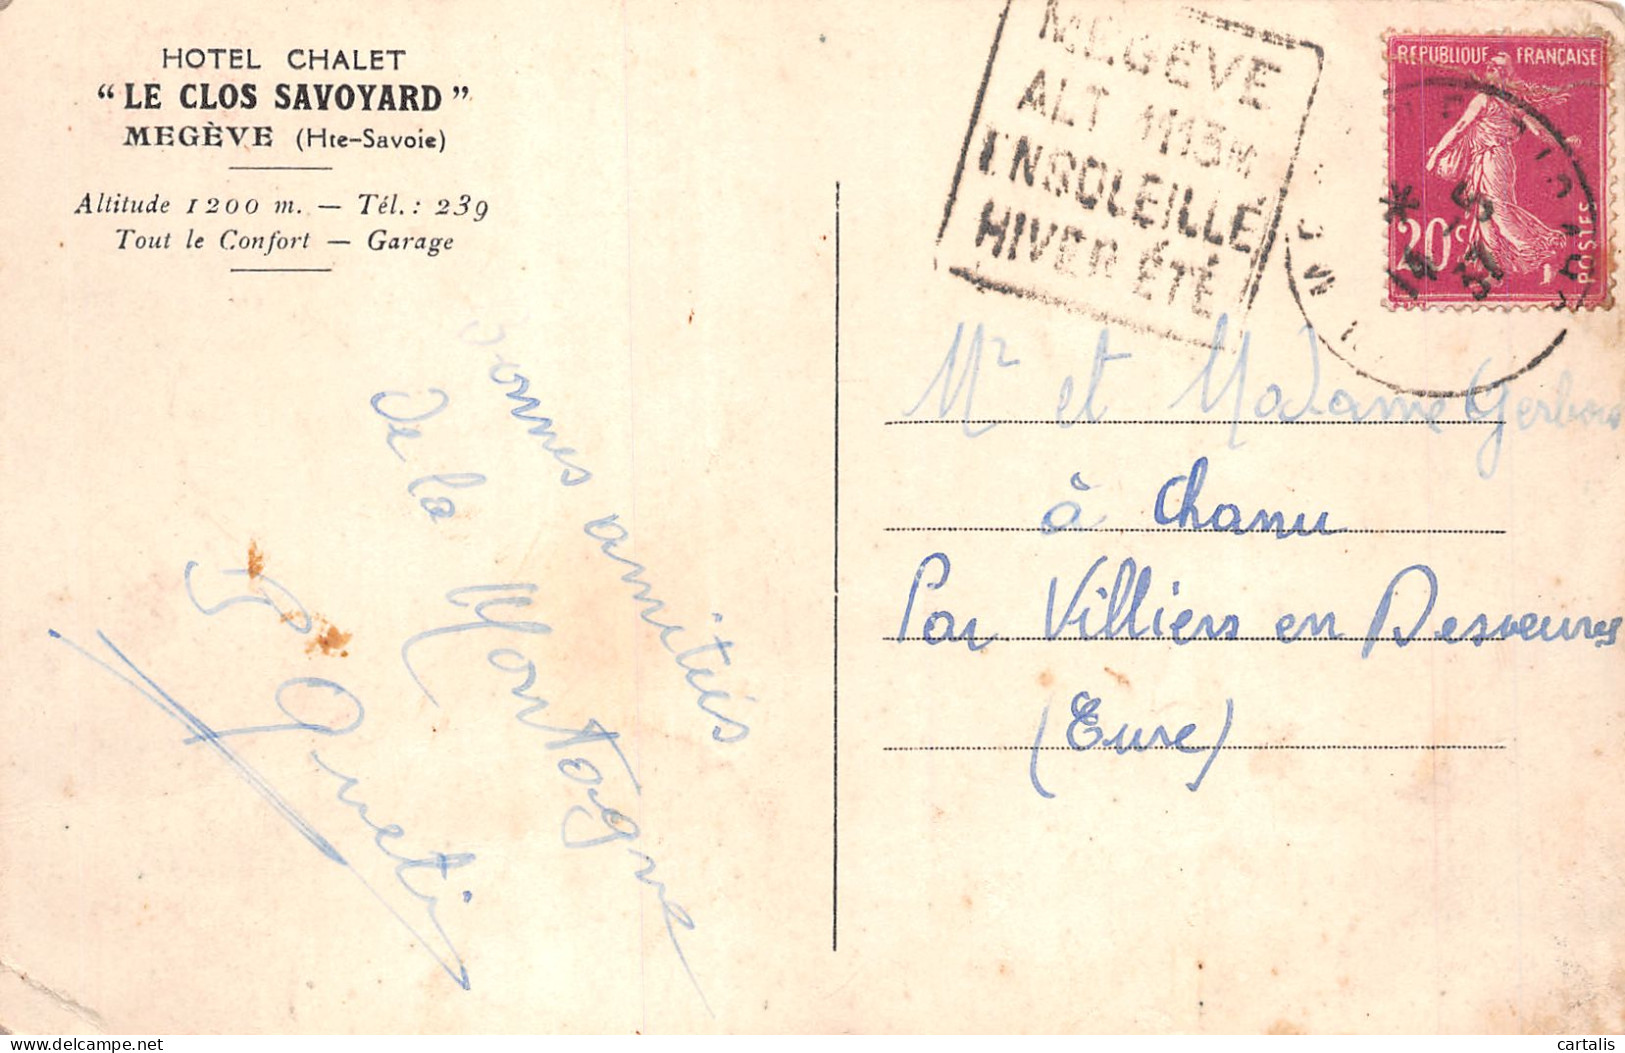 HOTEL CHALET
“LE CLOS SAVOYARD”
MEGÈVE (Hte-Savoie)
Altitude 1200 m. — Tél. : 239
Tout le Confort — Garage
MEGÈVE
ALT 1113M
ENSOLEILLÉ
HIVER ÉTÉ
REPUBLIQUE FRANÇAISE
20c
POSTES
14 -5
37
Bonnes amitiés
De la Montagne
Mr et Madame
à Chanu
Par Villiers en Desoeuvres
(Eure)
cartalis
delcampe.net